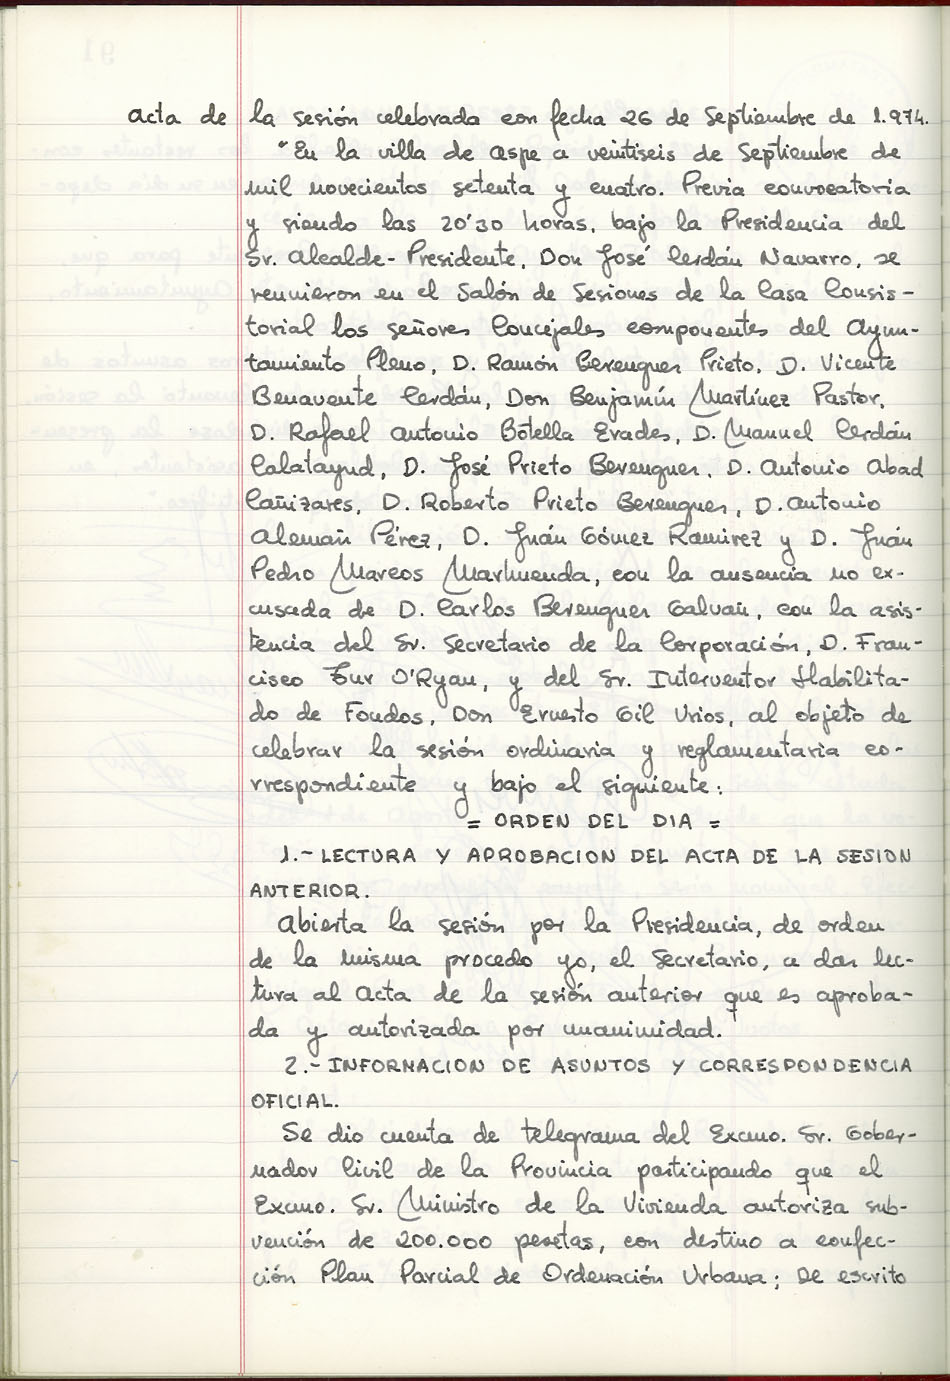 Acta de la sesión celebrada con fecha 26 de Septiembre de 1.974.
"En la villa de Aspe a veintiseis de Septiembre de
mil novecientos setenta y cuatro. Previa convocatoria
y siendo las 20'30 horas, bajo la Presidencia del
Sr. Alcalde-Presidente, Don José Cerdán Navarro, se
reunieron en el Salón de Sesiones de la Casa Consis-
torial los señores Concejales componentes del Ayun-
tamiento Pleno, D. Ramón Berenguer Prieto, D. Vicente
Benavente Cerdán, Don Benjamín Martínez Pastor,
D. Rafael Antonio Botella Erades, D. Manuel Cerdán
Calatayud, D. José Prieto Berenguer, D. Antonio Abad
Cañizares, D. Roberto Prieto Berenguer, D. Antonio
Alemañ Pérez, D. Juán Gómez Ramirez y D. Juán
Pedro Marcos Marhuenda, con la ausencia no ex-
cusada de D. Carlos Berenguer Galvañ, con la asis-
tencia del Sr. Secretario de la Corporación, D. Fran-
cisco Zur O'Ryan, y del Sr. Interventor Habilita-
do de Fondos, Don Ernesto Gil Urios, al objeto de
celebrar la sesión ordinaria y reglamentaria co-
rrespondiente y bajo el siguiente:
= ORDEN DEL DIA =
1.- LECTURA Y APROBACION DEL ACTA DE LA SESION
ANTERIOR.
Abierta la sesión por la Presidencia, de orden
de la misma procedo yo, el Secretario, a dar lec-
tura al Acta de la sesión anterior que es aproba-
da y autorizada por unanimidad.
2.- INFORMACION DE ASUNTOS Y CORRESPONDENCIA
OFICIAL.
Se dio cuenta de telegrama del Excmo. Sr. Gober-
nador Civil de la Provincia participando que el
Excmo. Sr. Ministro de la Vivienda autoriza sub-
vención de 200.000 pesetas, con destino a confec-
ción Plan Parcial de Ordenación Urbana; De escrito